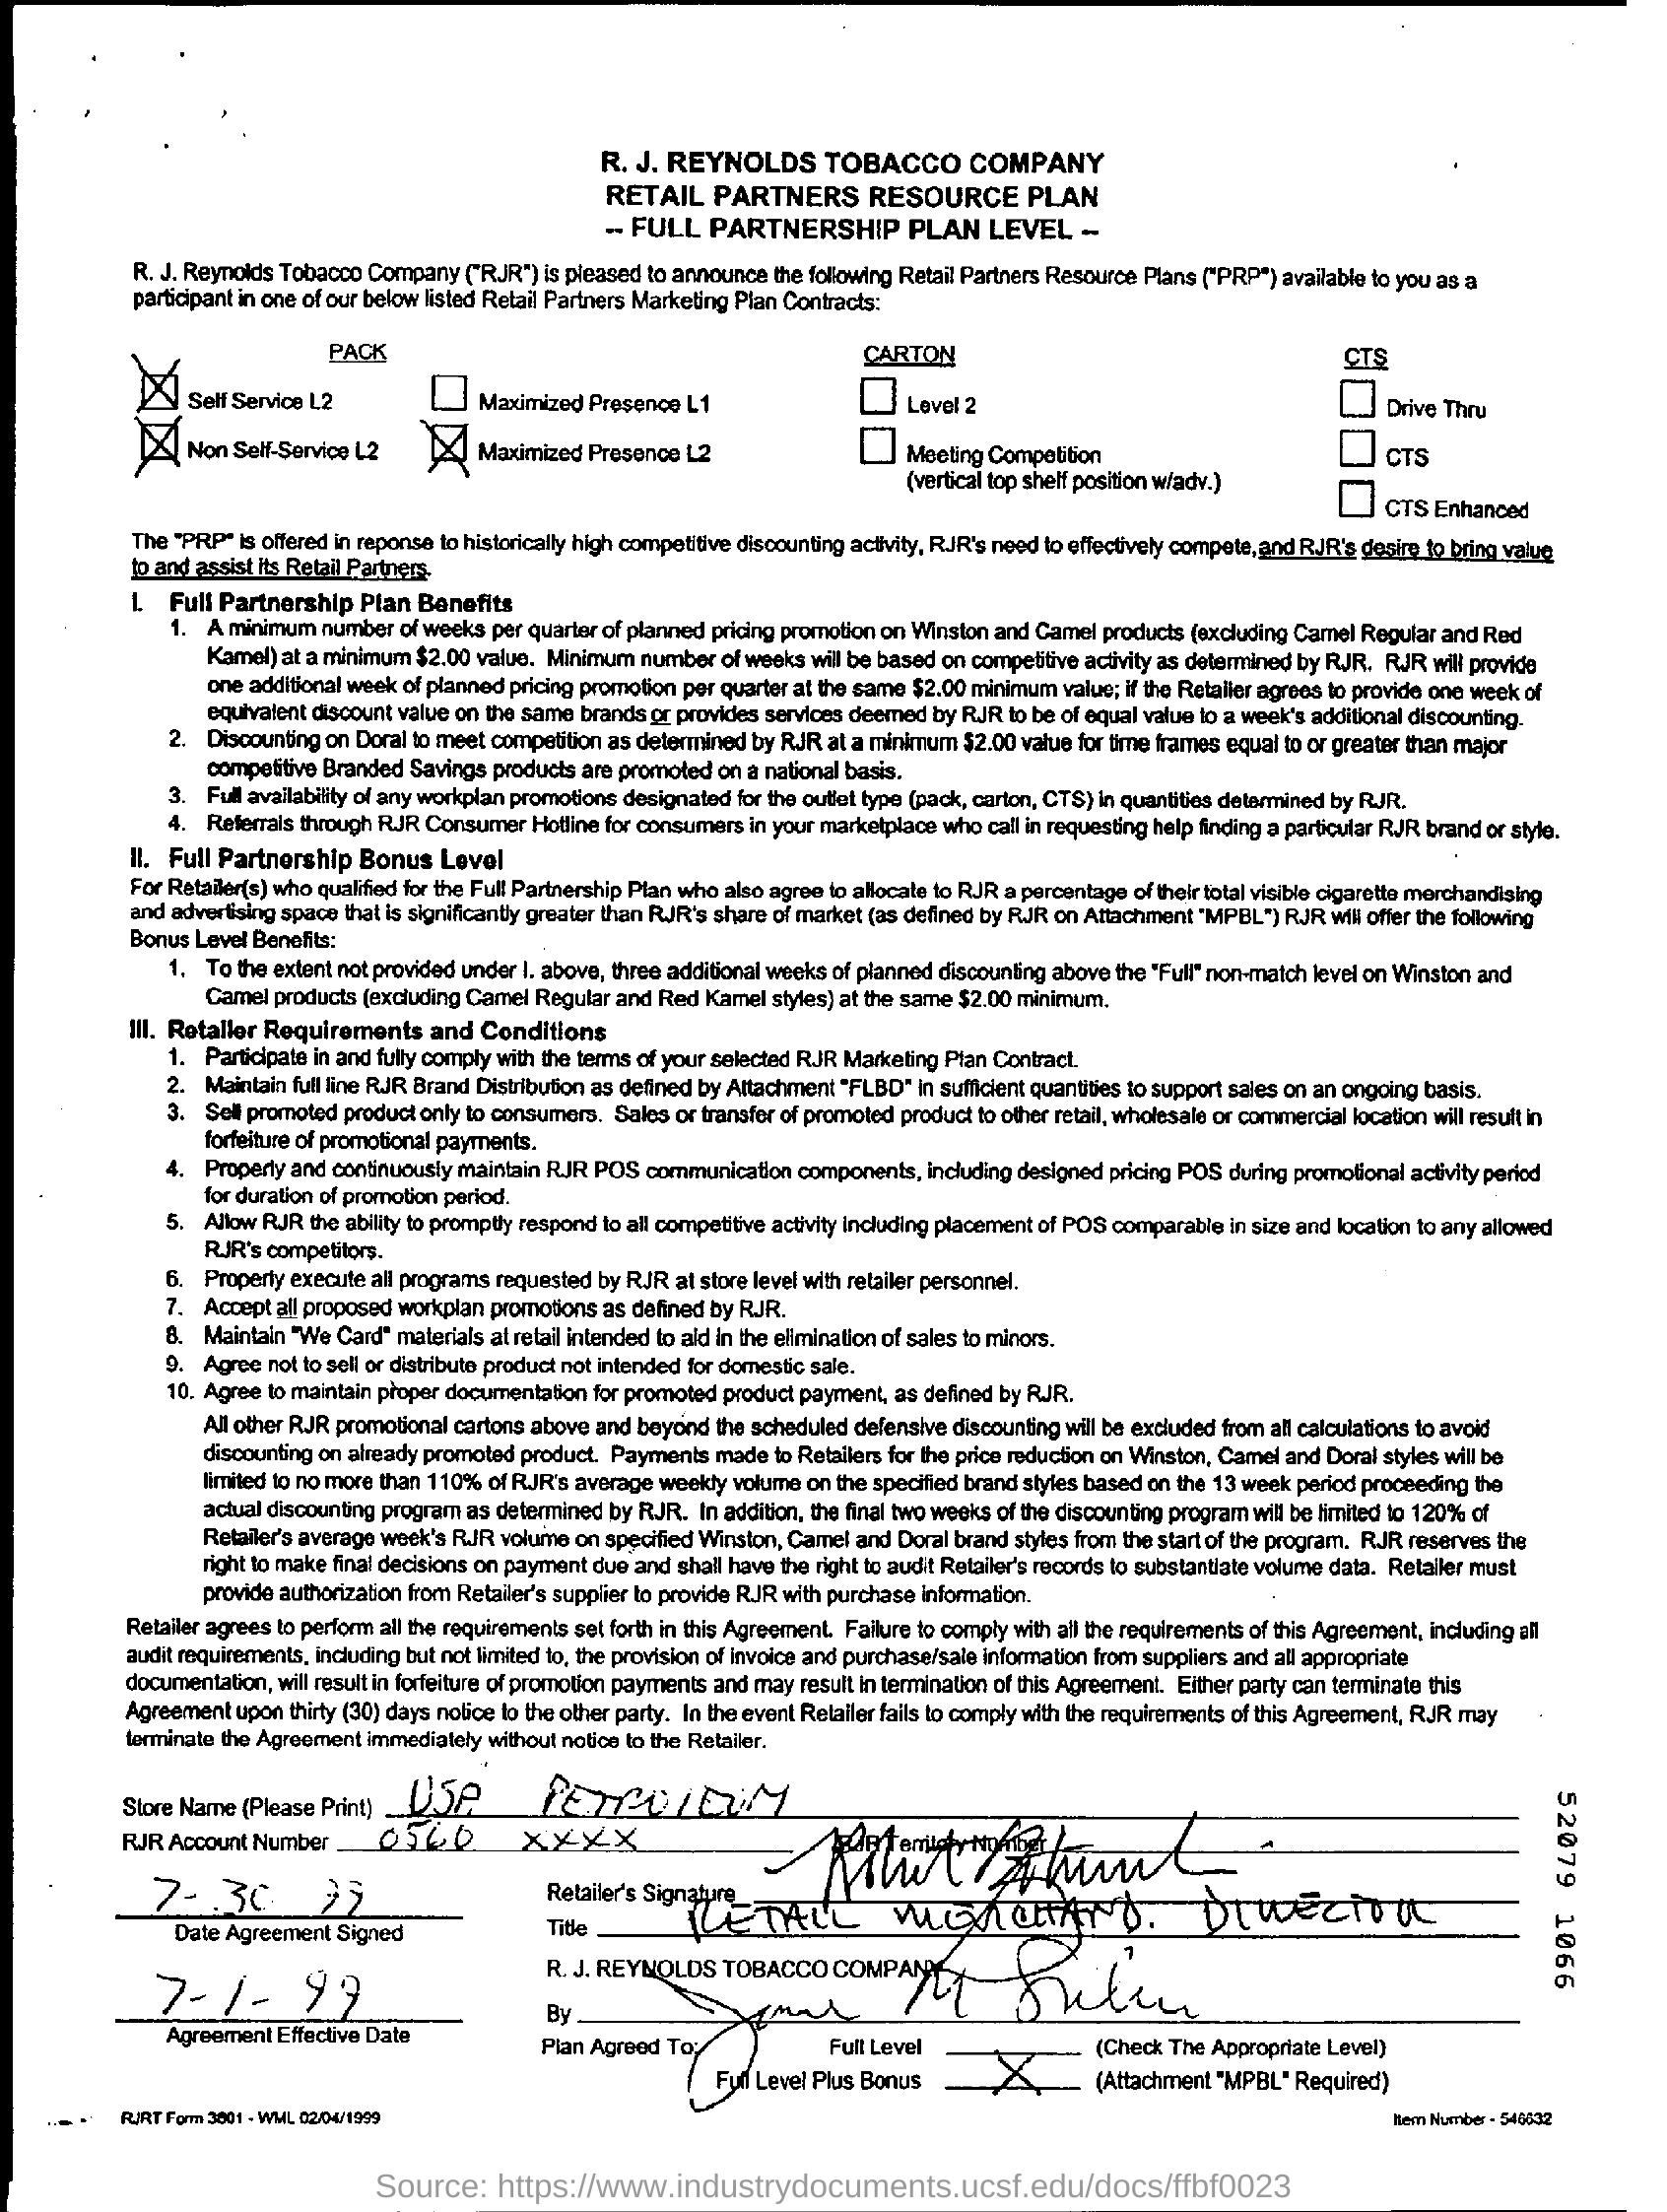 R. J. REYNOLDS TOBACCO COMPANY
RETAIL PARTNERS RESOURCE PLAN
-- FULL PARTNERSHIP PLAN LEVEL --
R. J. Reynolds Tobacco Company ("RJR") is pleased to announce the following Retail Partners Resource Plans ("PRP") available to you as a
participant in one of our below listed Retail Partners Marketing Plan Contracts:
PACK CARTON CTS
Self Service L2 Maximized Presence L1 Level 2 Drive Thru
Non Self-Service L2 Maximized Presence L2 Meeting Competition CTS
(vertical top shelf position w/adv.)
CTS Enhanced
The "PRP" is offered in reponse to historically high competitive discounting activity, RJR's need to effectively compete, and RJR's desire to bring value
to and assist its Retail Partners.
I. Full Partnership Plan Benefits
1. A minimum number of weeks per quarter of planned pricing promotion on Winston and Camel products (excluding Camel Regular and Red
Kamel) at a minimum $2.00 value. Minimum number of weeks will be based on competitive activity as determined by RJR. RJR will provide
one additional week of planned pricing promotion per quarter at the same $2.00 minimum value; if the Retailer agrees to provide one week of
equivalent discount value on the same brands or provides services deemed by RJR to be of equal value to a week's additional discounting.
2. Discounting on Doral to meet competition as determined by RJR at a minimum $2.00 value for time frames equal to or greater than major
competitive Branded Savings products are promoted on a national basis.
3. Full availability of any workplan promotions designated for the outlet type (pack, carton, CTS) in quantities determined by RJR.
4. Referrals through RJR Consumer Hotline for consumers in your marketplace who call in requesting help finding a particular RJR brand or style.
II. Full Partnership Bonus Level
For Retailer(s) who qualified for the Full Partnership Plan who also agree to allocate to RJR a percentage of their total visible cigarette merchandising
and advertising space that is significantly greater than RJR's share of market (as defined by RJR on Attachment "MPBL") RJR will offer the following
Bonus Level Benefits:
1. To the extent not provided under I. above, three additional weeks of planned discounting above the "Full" non-match level on Winston and
Camel products (excluding Camel Regular and Red Kamel styles) at the same $2.00 minimum.
III. Retailer Requirements and Conditions
1. Participate in and fully comply with the terms of your selected RJR Marketing Plan Contract.
2. Maintain full line RJR Brand Distribution as defined by Attachment "FLBD" in sufficient quantities to support sales on an ongoing basis.
3. Sell promoted product only to consumers. Sales or transfer of promoted product to other retail, wholesale or commercial location will result in
forfeiture of promotional payments.
4. Properly and continuously maintain RJR POS communication components, including designed pricing POS during promotional activity period
for duration of promotion period.
5. Allow RJR the ability to promptly respond to all competitive activity including placement of POS comparable in size and location to any allowed
RJR's competitors.
6. Properly execute all programs requested by RJR at store level with retailer personnel.
7. Accept all proposed workplan promotions as defined by RJR.
8. Maintain "We Card" materials at retail intended to aid in the elimination of sales to minors.
9. Agree not to sell or distribute product not intended for domestic sale.
10. Agree to maintain proper documentation for promoted product payment, as defined by RJR.
All other RJR promotional cartons above and beyond the scheduled defensive discounting will be excluded from all calculations to avoid
discounting on already promoted product. Payments made to Retailers for the price reduction on Winston, Camel and Doral styles will be
limited to no more than 110% of RJR's average weekly volume on the specified brand styles based on the 13 week period proceeding the
actual discounting program as determined by RJR. In addition, the final two weeks of the discounting program will be limited to 120% of
Retailer's average week's RJR volume on specified Winston, Camel and Doral brand styles from the start of the program. RJR reserves the
right to make final decisions on payment due and shall have the right to audit Retailer's records to substantiate volume data. Retailer must
provide authorization from Retailer's supplier to provide RJR with purchase information.
Retailer agrees to perform all the requirements set forth in this Agreement. Failure to comply with all the requirements of this Agreement, including all
audit requirements, including but not limited to, the provision of invoice and purchase/sale information from suppliers and all appropriate
documentation, will result in forfeiture of promotion payments and may result in termination of this Agreement. Either party can terminate this
Agreement upon thirty (30) days notice to the other party. In the event Retailer fails to comply with the requirements of this Agreement, RJR may
terminate the Agreement immediately without notice to the Retailer.
Store Name (Please Print) USA PETROLEUM
RJR Account Number 0560 XXXX RJR Territory Number
7-30 99 Retailer's Signature
Date Agreement Signed Title RETAIL MERCHAND. DIRECTOR
R. J. REYNOLDS TOBACCO COMPANY
7-1-99 By
Agreement Effective Date
Plan Agreed To: Full Level (Check The Appropriate Level)
Full Level Plus Bonus X (Attachment "MPBL" Required)
RJRT Form 3601 - WML 02/04/1999 Item Number - 546632
52079 1066
Source: https://www.industrydocuments.ucsf.edu/docs/ffbf0023